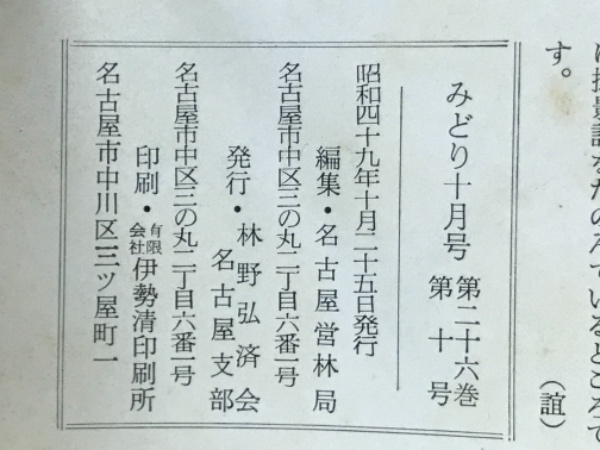 す。
(誼)
みどり十月号
第二十六巻
第十号
昭和四十九年十月二十五日発行
編集・名古屋営林局
名古屋市中区三の丸二丁目六番一号
発行・林野弘済会
名古屋支部
名古屋市中区三の丸二丁目六番一号
印刷・有限会社伊勢清印刷所
名古屋市中川区三ツ屋町一